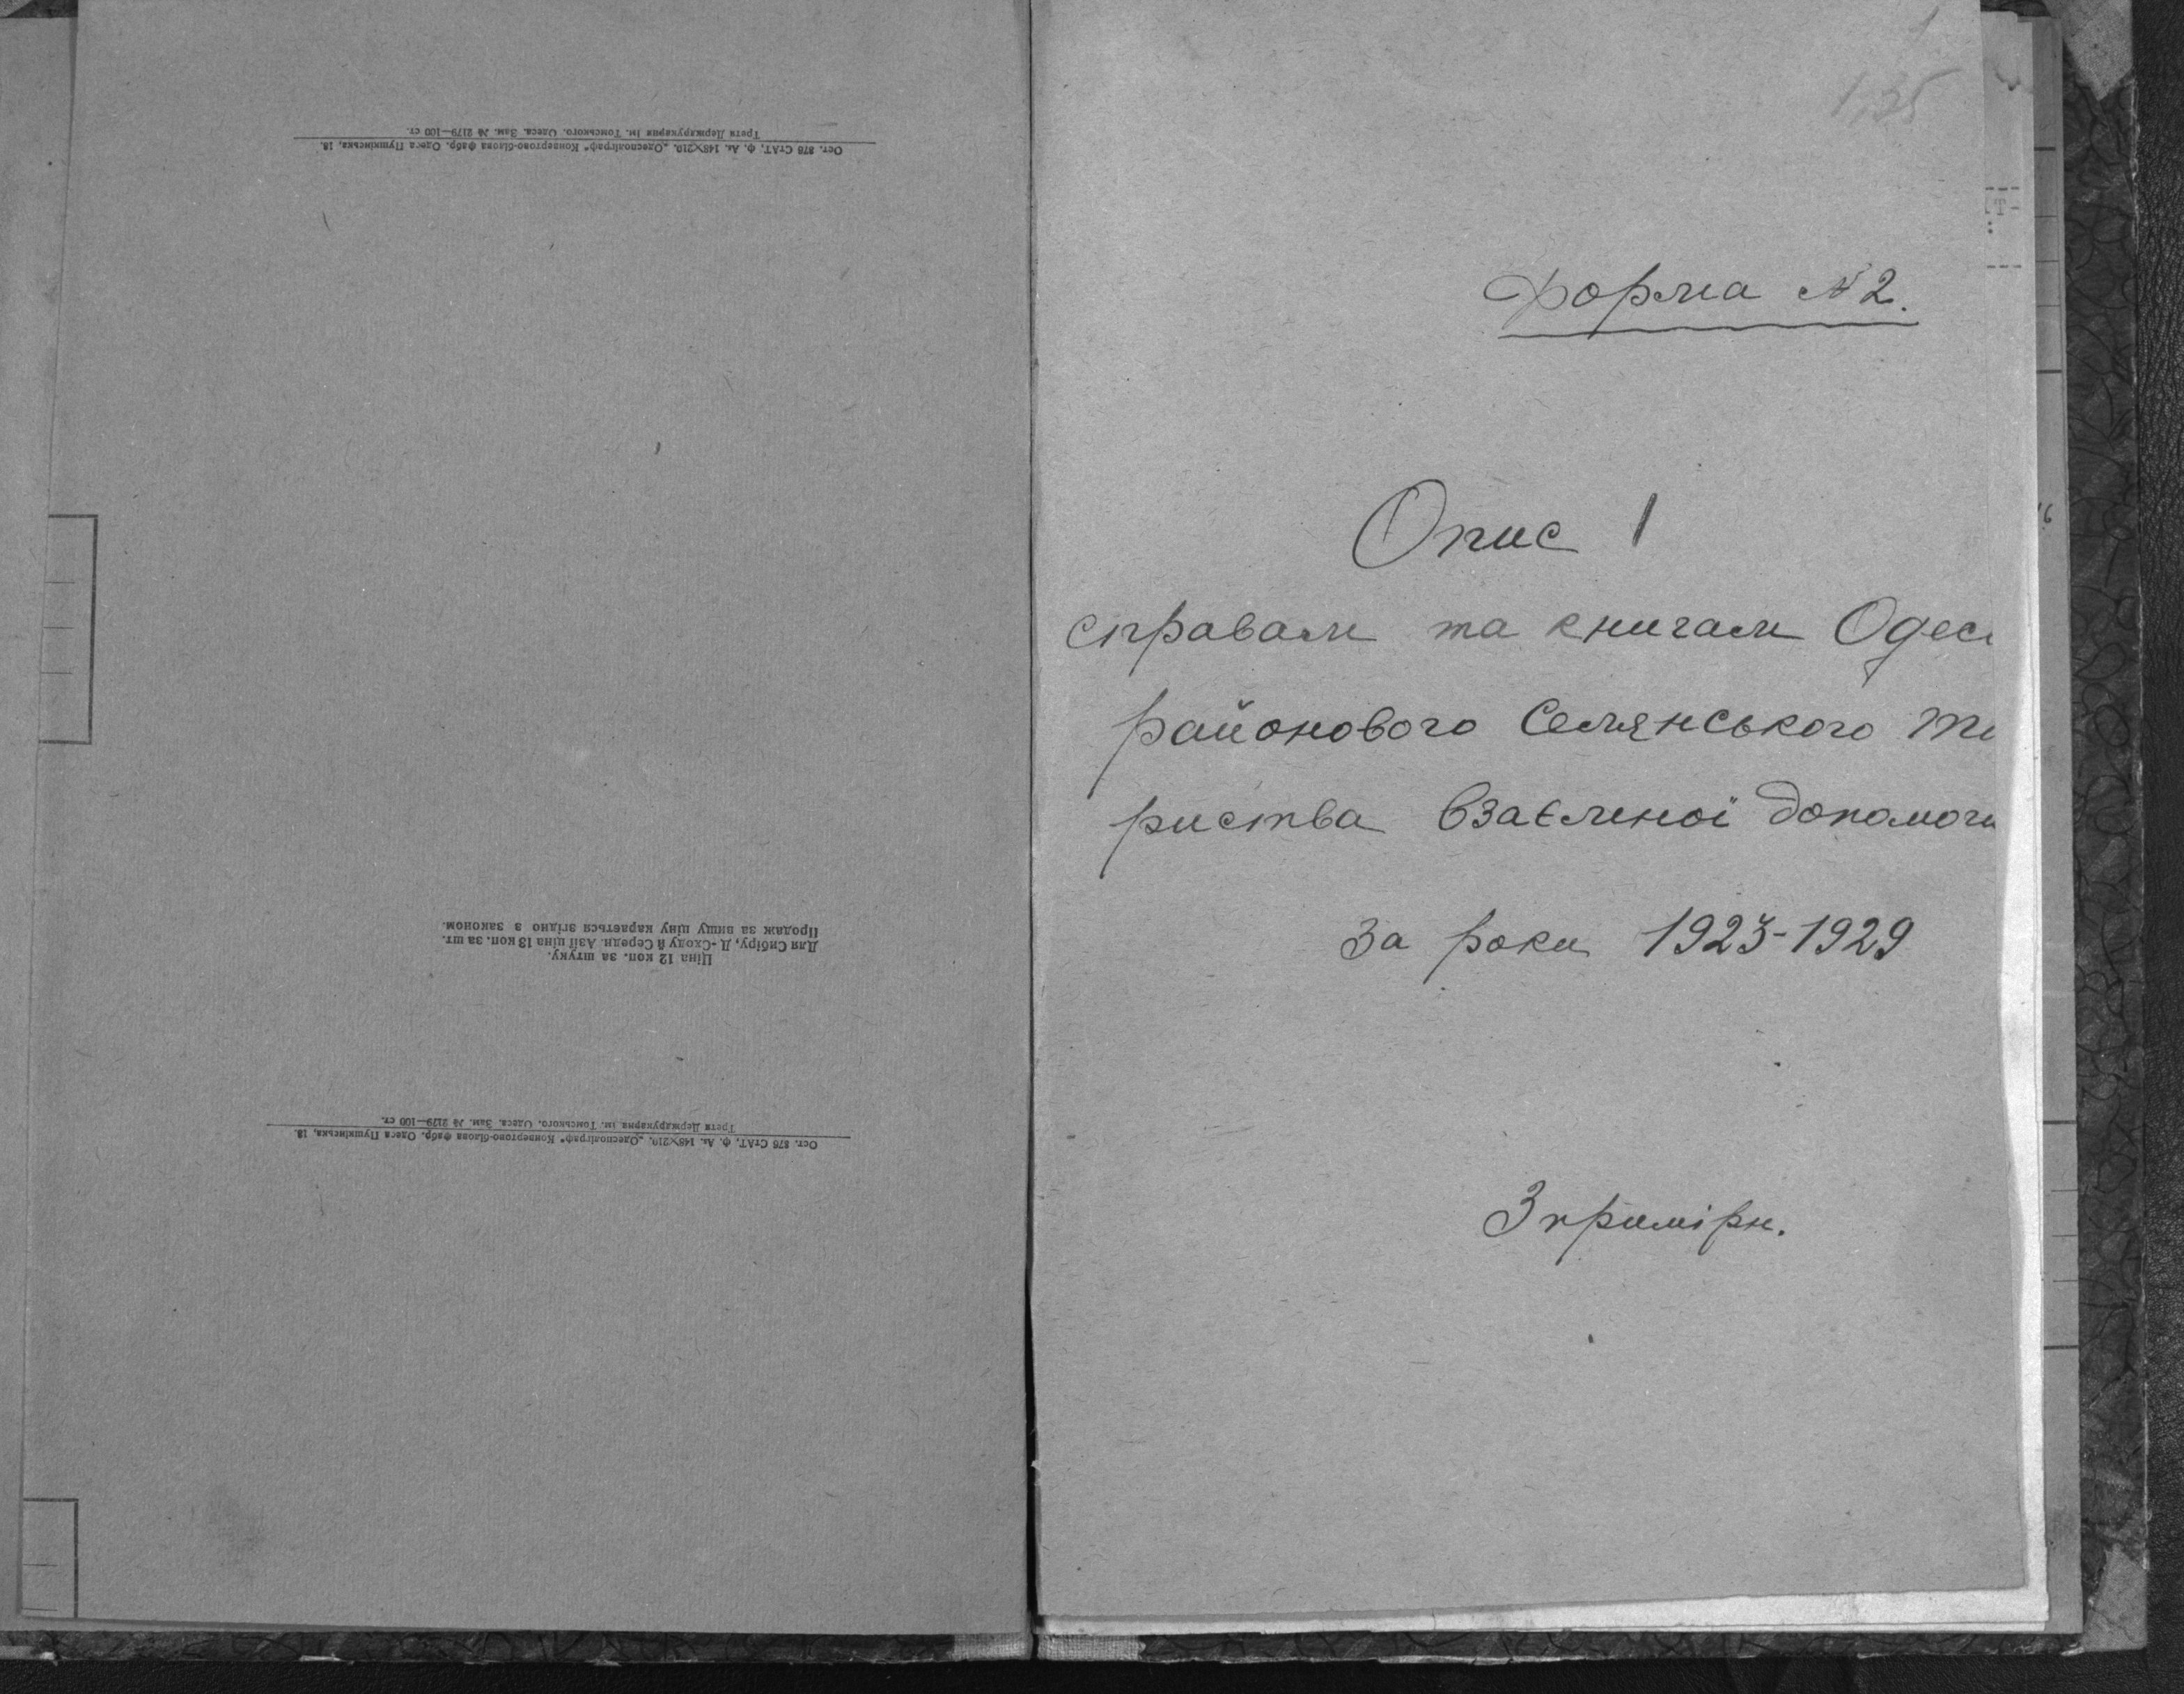 Третя Держдрукарня ім. Томського. Одеса. Зам. № 2179—100 ст.
Ост. 876 СтАТ, ф. А₅ 148×210. „Одесполіграф" Конвертово-білова фабр. Одеса Пушкінська, 18.
Ціна 12 коп. за штуку.
Для Сибіру, Д-Сходу й Середн. Азії ціна 13 коп. за шт.
Продаж за вищу ціну карається згідно з законом.
Третя Держдрукарня ім. Томського. Одеса. Зам. № 2179—100 ст.
Ост. 876 СтАТ, ф. А₅ 148×210. „Одесполіграф" Конвертово-білова фабр. Одеса Пушкінська, 18.
1
1,35
Форма №2.
Опис 1
справам та книгам Одес
районового Селянського т
риства взаємної допомоги
за роки 1923-1929
3 примірн.